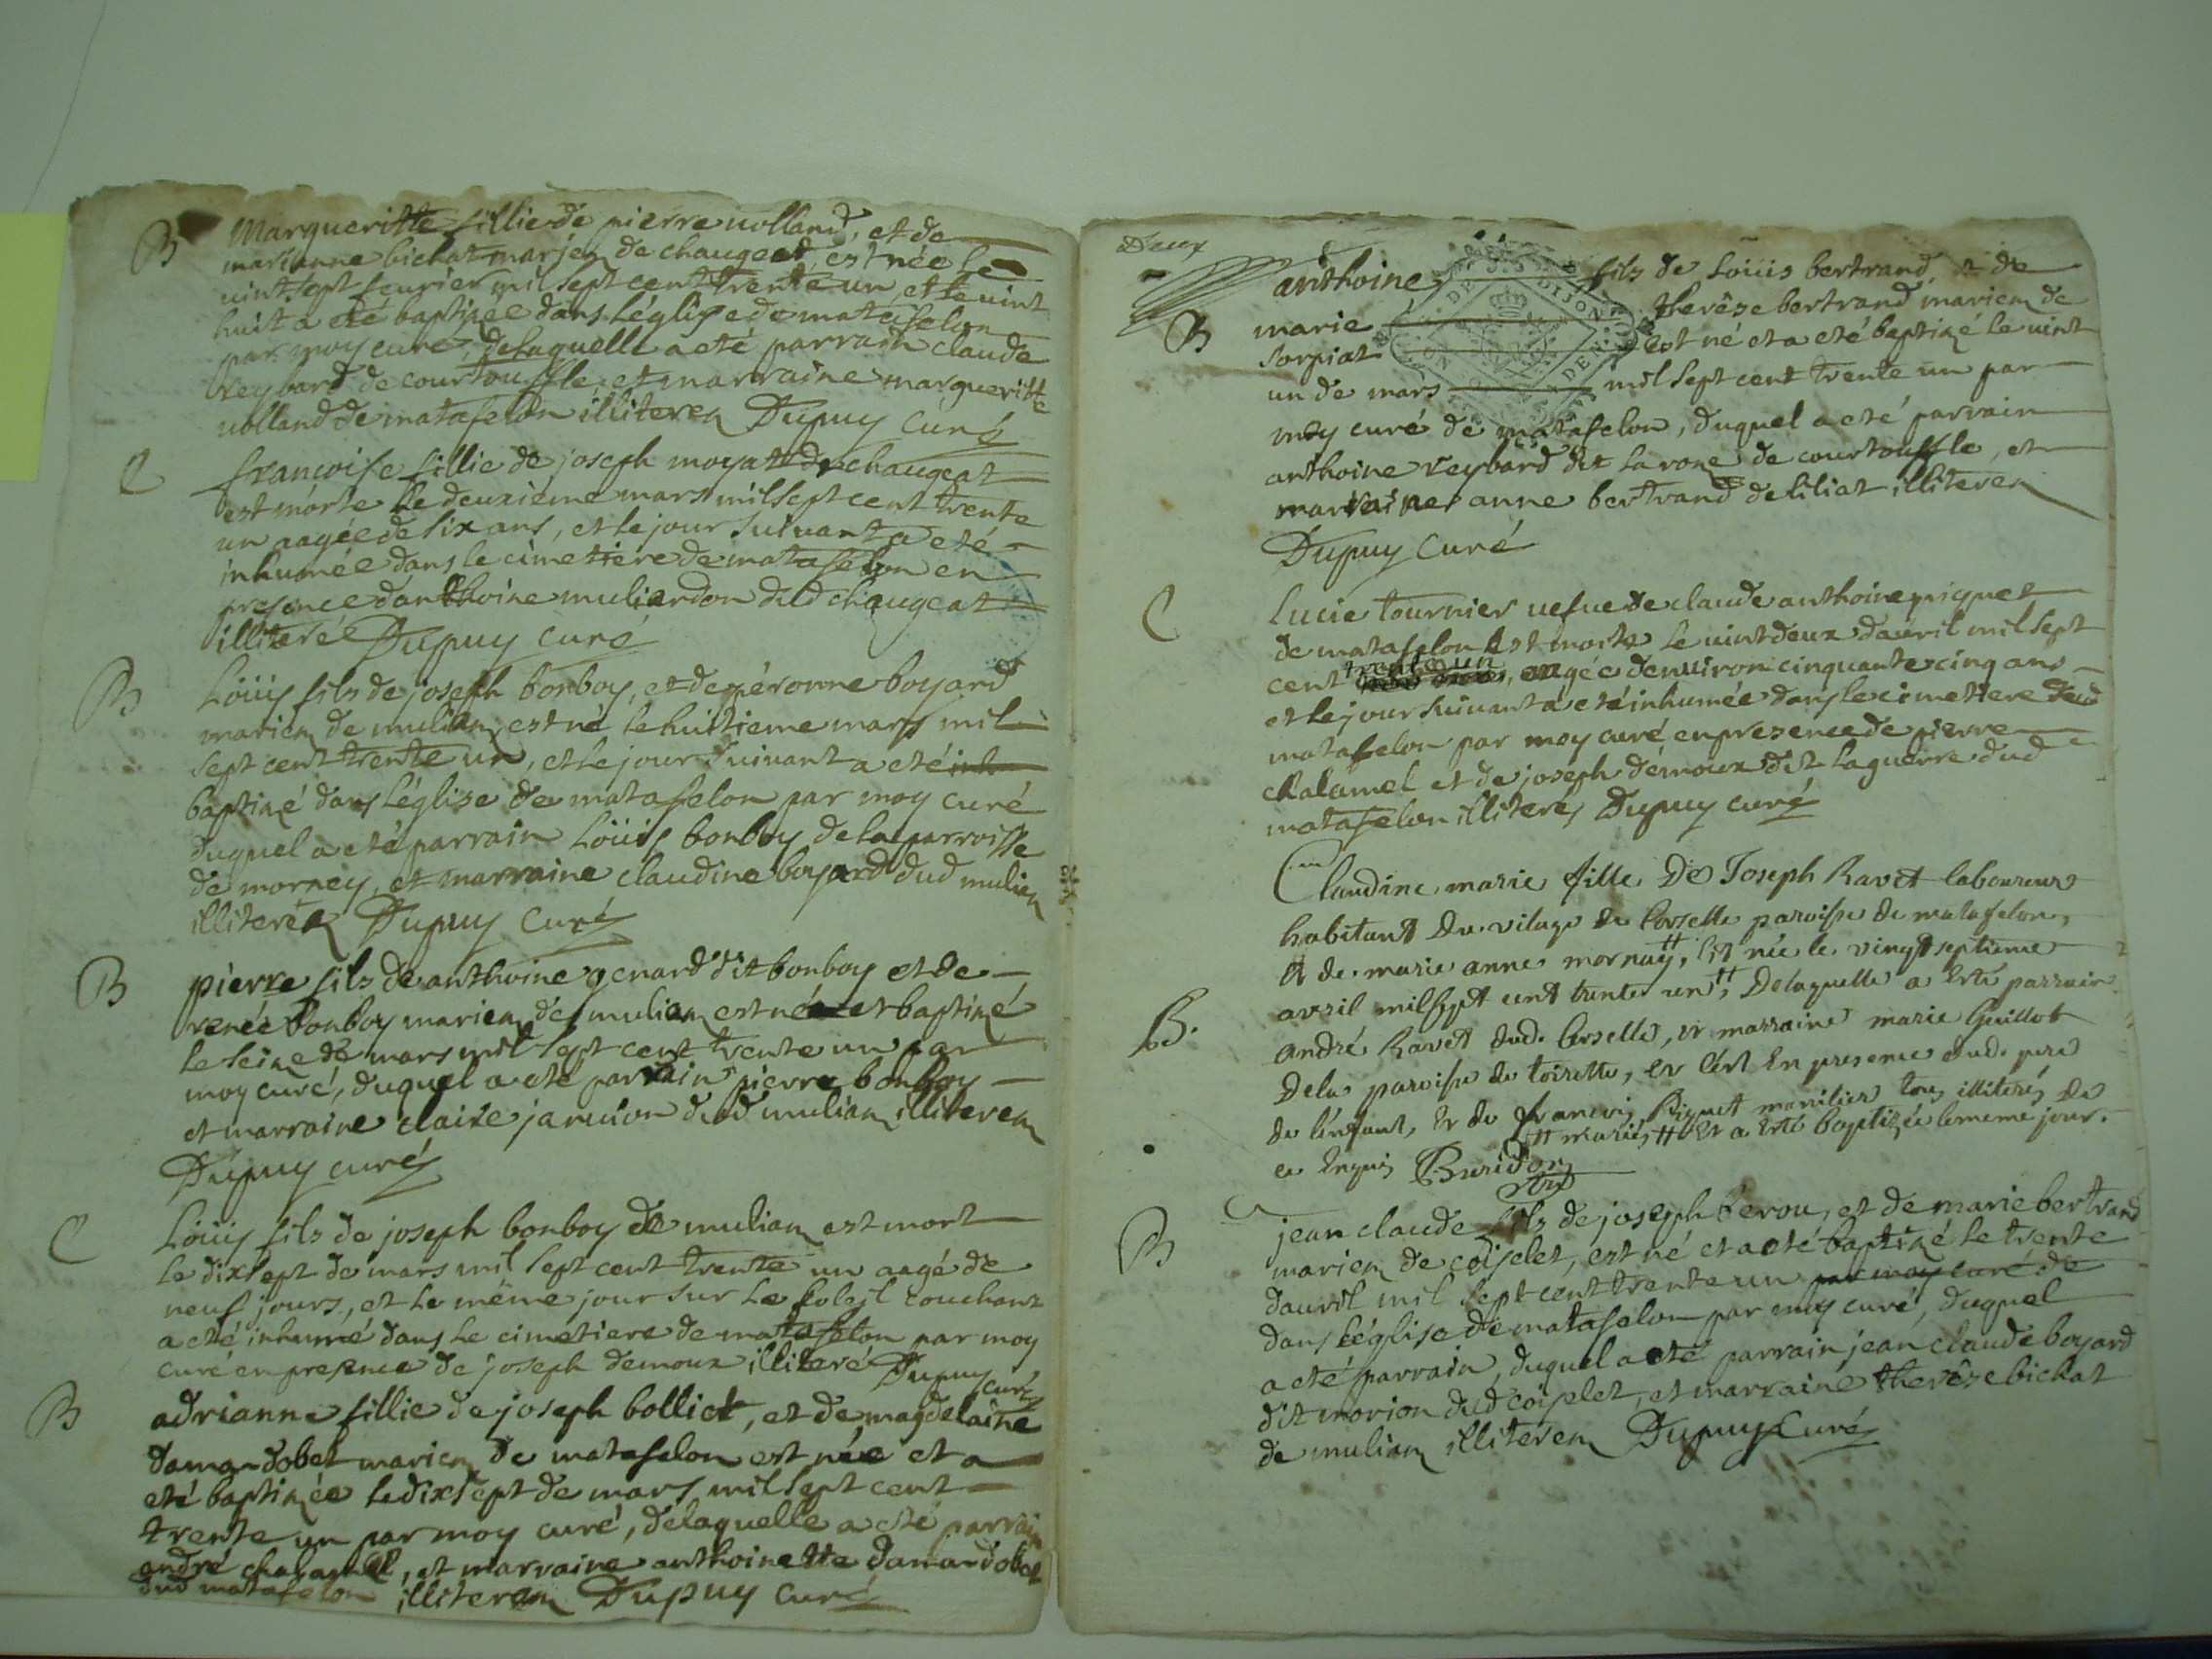 B
Margueritte fillie de pierre uolland, et de
marianne bichat mariez de chaugeat, est née le
uint sept feurier mil sept cent trente un et le uint
huit a eté baptizée dans léglize de matafelon
par moy curé, de laquelle a eté parrain claude
reybard de courtouffle, et marraine margueritte
uolland de matafelon illiterez Dupuy curé
C
francoise fillie de joseph moyat de chaugeat
est morte le deuxieme mars mil sept cent trente
un aagée de six ans, et le jour suiuant a eté
inhumée dans le cimetiere de matafelon en
presence danthoine muliardon dud chaugeat
illiteré Dupuy curé
B
Loüis fils de joseph bonboy, et de péronne boyard
mariez de mulian, est né le huitieme mars mil
sept cent trente un, et le jour suiuant a eté
baptizé dans léglise de matafelon par moy curé
duquel a eté parrain Loüis bonboy de la parroisse
de mornay, et marraine claudine boyard dud mulian
illiterez Dupuy curé
B
pierre fils de anthoine genard dit bonboy et de
renée bonboy mariez de mulian est né et baptizé
le seize de mars mil sept cent trente un par
moy curé, duquel a eté parrain pierre bonboy
et marraine claire jannion dud mulian illiterez
Dupuy curé
C
Loüis fils de joseph bonboy de mulian est mort
le dixsept de mars mil sept cent trente un aagé de
neuf jours, et le même jour sur le soleil couchant
a eté inhumé dans le cimetiere de matafelon par moy
curé en presence de joseph demoux illiteré Dupuy curé
B
adrianne fillie de joseph bolliet, et de magdelaine
damandobet mariez de matafelon est née et a
eté baptizée le dixsept de mars mil sept cent
trente un par moy curé, de laquelle a eté parrain
andré chalamel, et marraine anthoinette damandobet
dud matafelon illiterez Dupuy curé
Deux
B
anthoine fils de Loüis bertrand, & de
marie therêse bertrand mariez de
sorpiat est né et a eté baptizé le uint
un de mars mil sept cent trente un par
moy curé de matafelon, duquel a eté parrain
anthoine reybard dit la roze de courtouffle, et
marraine anne bertrand de siliat illiterez
Dupuy curé
C
Lucie tournier uefue de claude anthoine piquet
de matafelon est morte le uint deux dauril mil sept
cent trente un, aagée denuiron cinquante cinq ans
et le jour suiuant a eté inhumée dans le cimetiere dud
matafelon par moy curé en presence de pierre
chalamel et de joseph démoux dit laguerre dud
matafelon illiterés Dupuy curé
B.
Claudine marie fille De Joseph Ravet laboureur
habitant du vilage de Corselle paroisse de matafelon,
et de marie anne mornay, est née le vingt septieme
avril mil sept cent trente un, De laquelle a esté parrain
andré Ravet dud. Corselle, et marraine marie Guillot
De la paroisse de toirette, et c'est en presence dud. pere
de l'enfant, et de francois Piquet manilier tous illiterés de
ce enquis Buridon
mariés et a esté baptizée le meme jour.
B
jean claude fils de joseph serou, et de marie bertrand
mariez de coiselet, est né et a eté baptizé le trente
dauril mil sept cent trente un par moy curé de
dans léglise de matafelon par moy curé, duquel
a eté parrain, duquel a eté parrain jean claude boyard
dit morion dud coiselet, et marraine therêse bichat
de mulian illiterez Dupuy Curé